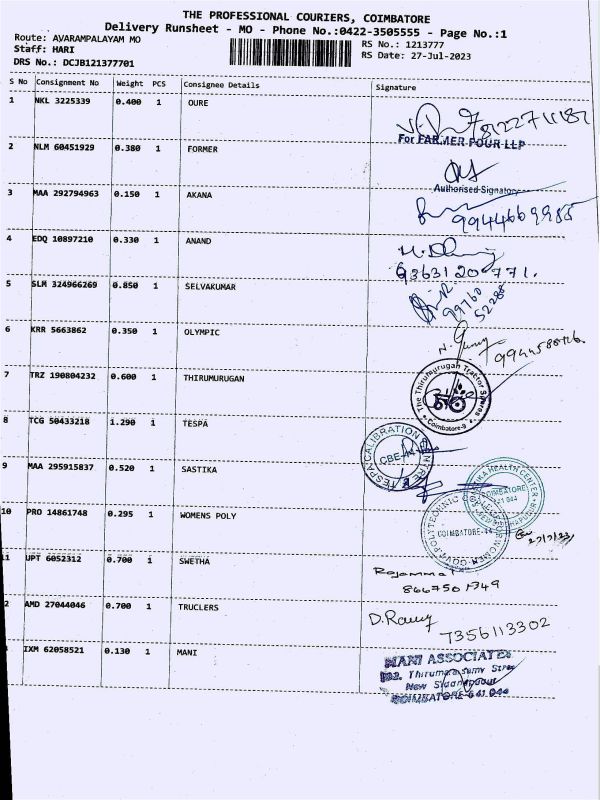 THE PROFESSIONAL COURIERS, COIMBATORE
Delivery Runsheet - MO - Phone No.:0422-3505555 - Page No.:1
Route: AVARAMPALAYAM MO
RS No.: 1213777
Staff: HARI
RS Date: 27-Jul-2023
DRS No.: DCJB121377701
S No Consignment No Weight PCS Consignee Details Signature
1 NKL 3225339 0.400 1 OURE
For FARMER FOUR LLP
2 NLM 60451929 0.380 1 FORMER
Authorised Signatory
3 MAA 292794963 0.150 1 AKANA
4 EDQ 10897210 0.330 1 ANAND
9363120771.
5 SLM 324966269 0.850 1 SELVAKUMAR
99760
52288
6 KRR 5663862 0.350 1 OLYMPIC
7 TRZ 190804232 0.600 1 THIRUMURUGAN
The Thirumurugan Tractor Spares
Coimbatore-9
8 TCG 50433218 1.290 1 TESPA
TESPA CALIBRATION CENTRE
CBE-44
9 MAA 295915837 0.520 1 SASTIKA
HEALTH CENTER
COIMBATORE
10 PRO 14861748 0.295 1 WOMENS POLY
COIMBATORE-44
27/7/23
11 UPT 6052312 0.700 1 SWETHA
Rajammal
8667501349
2 AMD 27044046 0.700 1 TRUCLERS
7356113302
IXM 62058521 0.130 1 MANI
MANI ASSOCIATES
New Siddhapudur
COIMBATORE-641 044